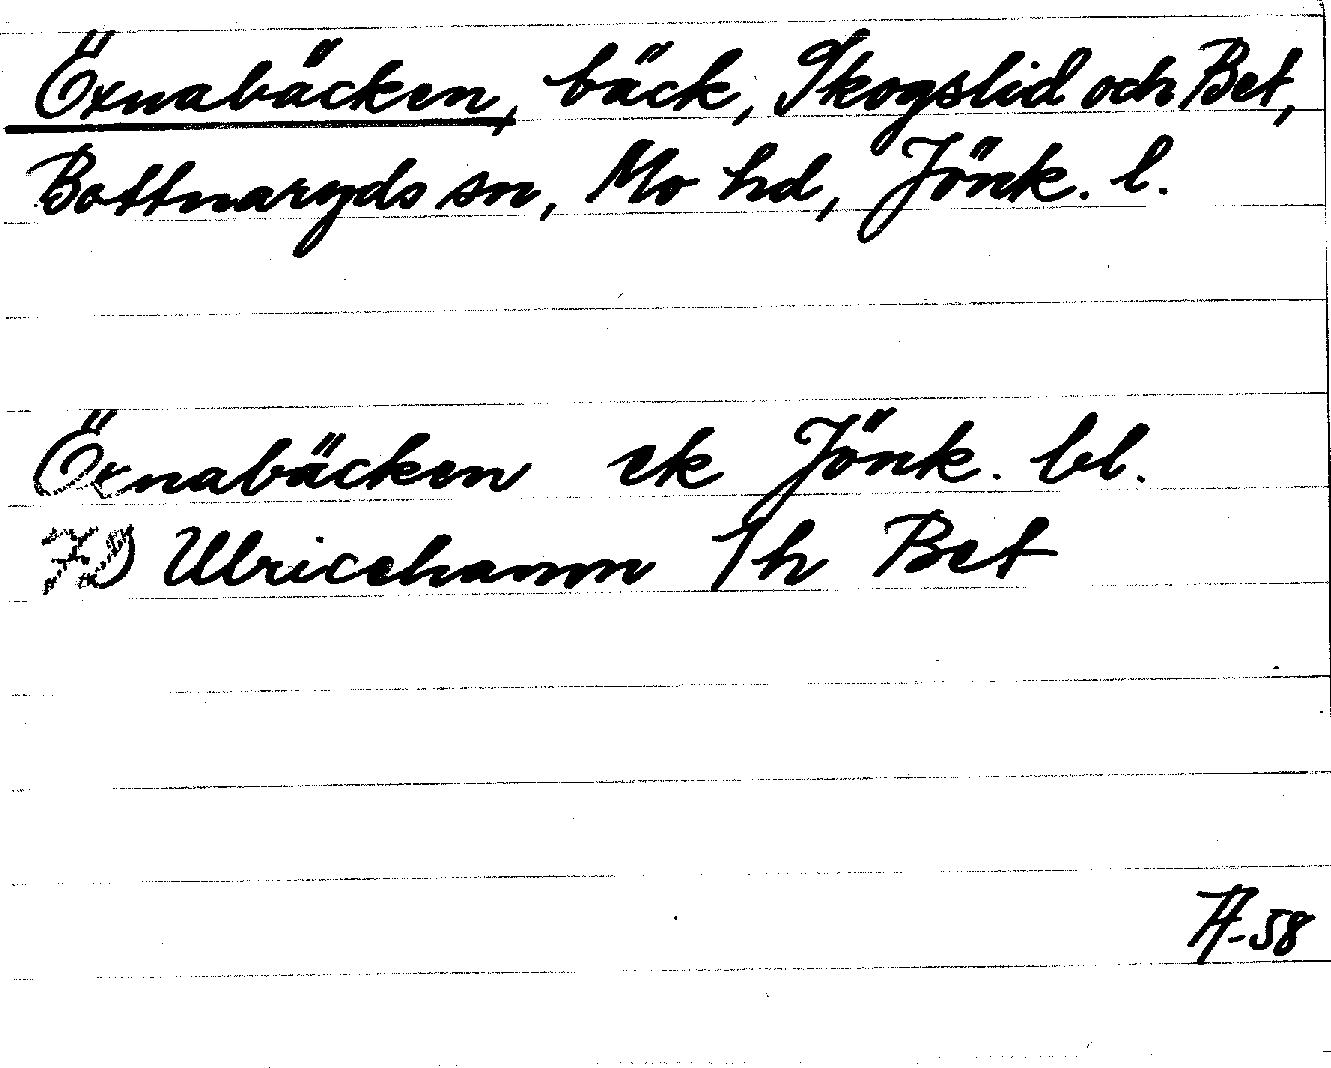 Öxnabäcken, bäck, Skogslid och Bet,
Bottnaryds sn, Mo hd, Jönk. l.
Öxnabäcken ek Jönk. bl.
Ulricehamn Th Bet
-58